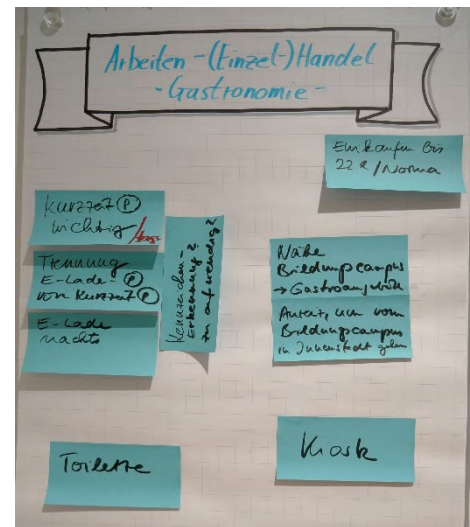 Arbeiten - (Einzel-)Handel
- Gastronomie -
Einkaufen bis
22 /Norma
Kurzzeit P
wichtig
Trennung
E-Lade- P
von Kurzzeit P
E-Lade
nachts
Kennzeichen-
Erkennung?
zu aufwendig?
Nähe
Bildungscampus
→ Gastroangebote
Anreiz, um vom
Bildungscampus
in Innenstadt gehen
Toilette
Kiosk